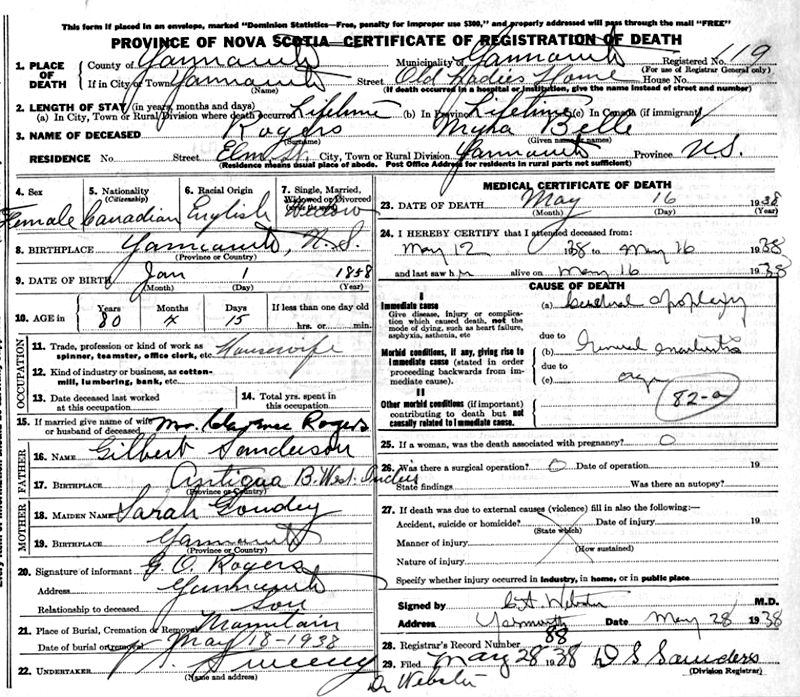 This form if placed in an envelope, marked "Dominion Statistics—Free, penalty for improper use $300," and properly addressed will pass through the mail "FREE"
PROVINCE OF NOVA SCOTIA—CERTIFICATE OF REGISTRATION OF DEATH
1. PLACE OF DEATH County of Yarmouth Municipality of Yarmouth Registered No. 119
(For use of Registrar General only)
If in City or Town Yarmouth Street Old Ladies Home House No.
(Name) (If death occurred in a hospital or institution, give the name instead of street and number)
2. LENGTH OF STAY (in years, months and days)
(a) In City, Town or Rural Division where death occurred Lifetime (b) In Province Lifetime (c) In Canada (if immigrant)
3. NAME OF DECEASED Rogers Myra Belle
(Surname) (Given name or names)
RESIDENCE No. Street Elm St. City, Town or Rural Division Yarmouth Province N.S.
(Residence means usual place of abode. Post Office Address for residents in rural parts not sufficient)
4. Sex Female
5. Nationality (Citizenship) Canadian
6. Racial Origin English
7. Single, Married, Widowed or Divorced Widow
8. BIRTHPLACE Yarmouth, N.S.
(Province or Country)
9. DATE OF BIRTH Jan 1 1858
(Month) (Day) (Year)
10. AGE in Years Months Days If less than one day old
80 4 15 hrs. or min.
OCCUPATION
11. Trade, profession or kind of work as spinner, teamster, office clerk, etc. Housewife
12. Kind of industry or business, as cotton-mill, lumbering, bank, etc.
13. Date deceased last worked at this occupation
14. Total yrs. spent in this occupation
15. If married give name of wife or husband of deceased Mr. Clarence Rogers
FATHER
16. NAME Gilbert Sanderson
17. BIRTHPLACE Antigua B. West. Indies
(Province or Country)
MOTHER
18. MAIDEN NAME Sarah Goudey
19. BIRTHPLACE Yarmouth
(Province or Country)
20. Signature of informant G O. Rogers
Address Yarmouth
Relationship to deceased Son
21. Place of Burial, Cremation or Removal Mountain
Date of burial or removal May 18-1938
22. UNDERTAKER Sweeny
(Name and address)
MEDICAL CERTIFICATE OF DEATH
23. DATE OF DEATH May 16 1938
(Month) (Day) (Year)
24. I HEREBY CERTIFY that I attended deceased from
May 12 1938 to May 16 1938
and last saw her alive on May 16 1938
CAUSE OF DEATH
I
Immediate cause
Give disease, injury or complication which caused death, not the mode of dying, such as heart failure, asphyxia, asthenia, etc
(a) Cerebral apoplexy
due to
Morbid conditions, if any, giving rise to immediate cause (stated in order proceeding backwards from immediate cause).
(b) General
due to
(c) age
82-a
II
Other morbid conditions (if important) contributing to death but not causally related to immediate cause.
25. If a woman, was the death associated with pregnancy? 0
26. Was there a surgical operation? 0 Date of operation 19
State findings Was there an autopsy?
27. If death was due to external causes (violence) fill in also the following:—
Accident, suicide or homicide? Date of injury 19
(State which)
Manner of injury
(How sustained)
Nature of injury
Specify whether injury occurred in industry, in home, or in public place
Signed by C.A. Webster M.D.
Address Yarmouth Date May 28 1938
28. Registrar's Record Number 88
29. Filed May 28 1938 D S Saunders
(Division Registrar)
Dr Webster